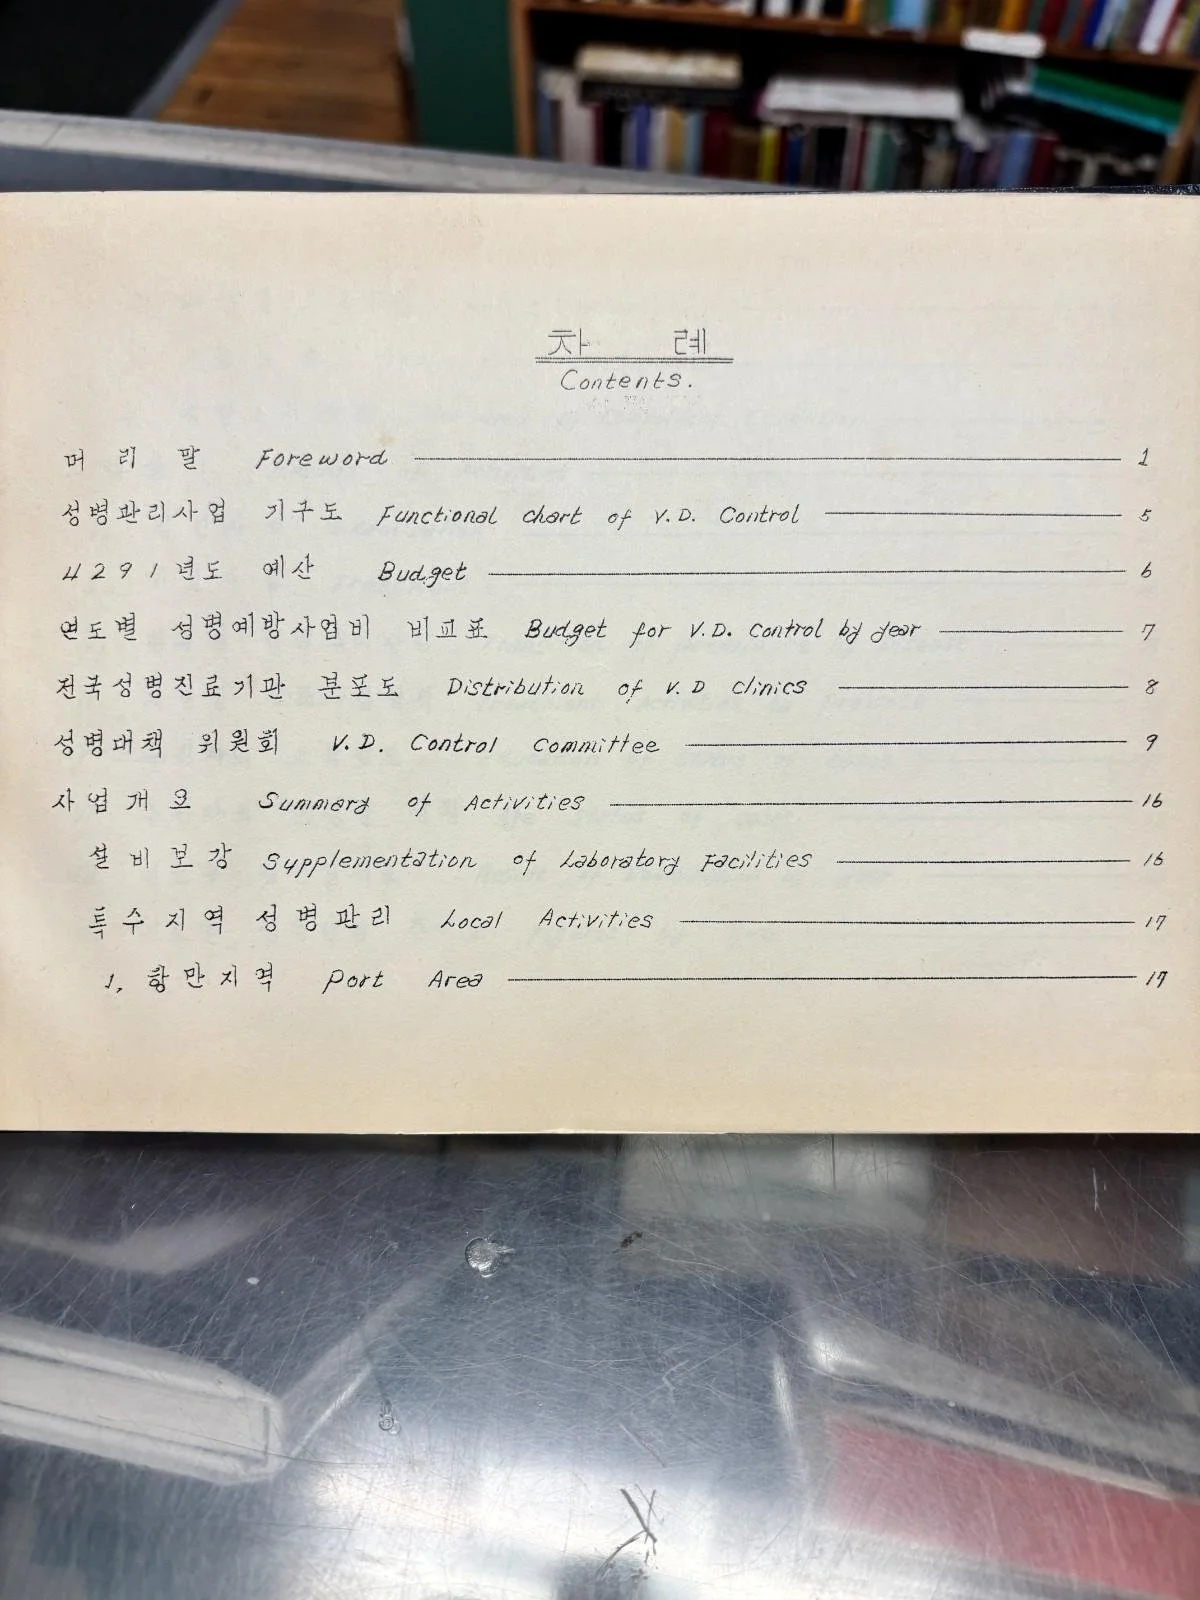 차 례
Contents.
머리말 Foreword 1
성병관리사업 기구도 Functional chart of V.D. Control 5
4291년도 예산 Budget 6
연도별 성병예방사업비 비교표 Budget for V.D. Control by year 7
전국성병진료기관 분포도 Distribution of V.D clinics 8
성병대책 위원회 V.D. Control Committee 9
사업개요 Summary of Activities 16
설비보강 Supplementation of Laboratory Facilities 16
특수지역 성병관리 Local Activities 17
1. 항만지역 Port Area 17